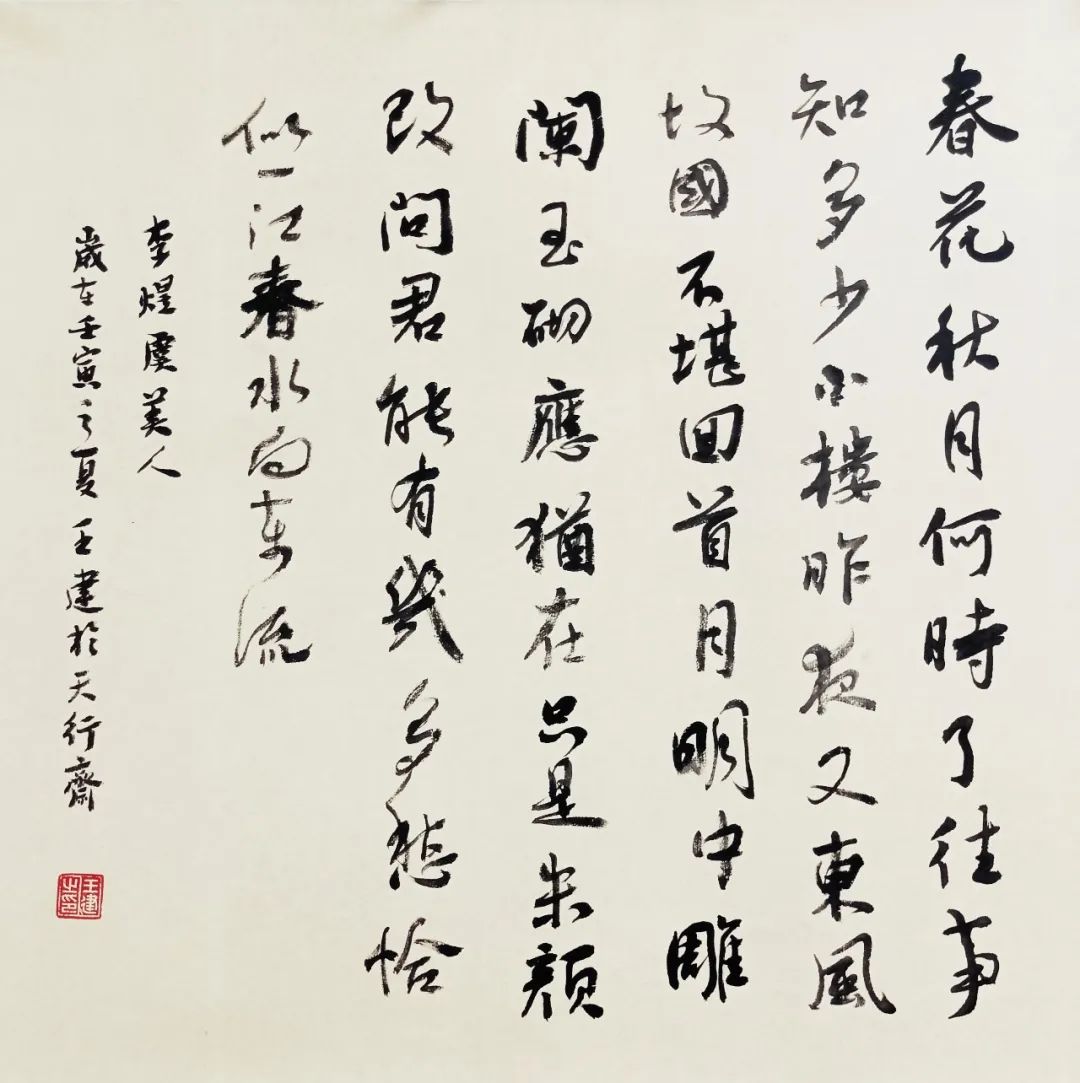 春花秋月何時了往事
知多少小樓昨夜又東風
故國不堪回首月明中雕
闌玉砌應猶在只是朱顏
改問君能有幾多愁恰
似一江春水向東流
李煜虞美人
歲在壬寅之夏王建於天行齋
王建之印